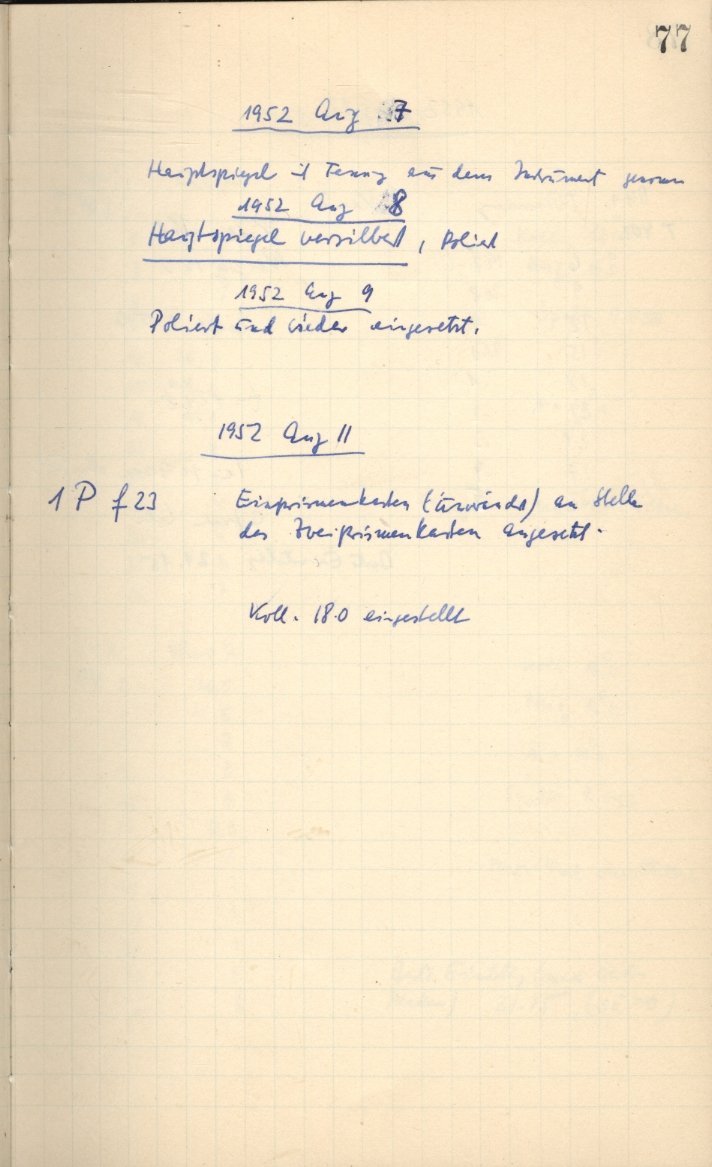 77
1952 Aug 7
Hauptspiegel mit Fassung aus dem Instrument genommen
1952 Aug 8
Hauptspiegel versilbert, Poliert
1952 Aug 9
Poliert und wieder eingesetzt.
1952 Aug 11
1 P f 23 Einprismenkasten () an Stelle
des Zweiprismenkasten angesetzt.
Koll. 18.0 eingestellt